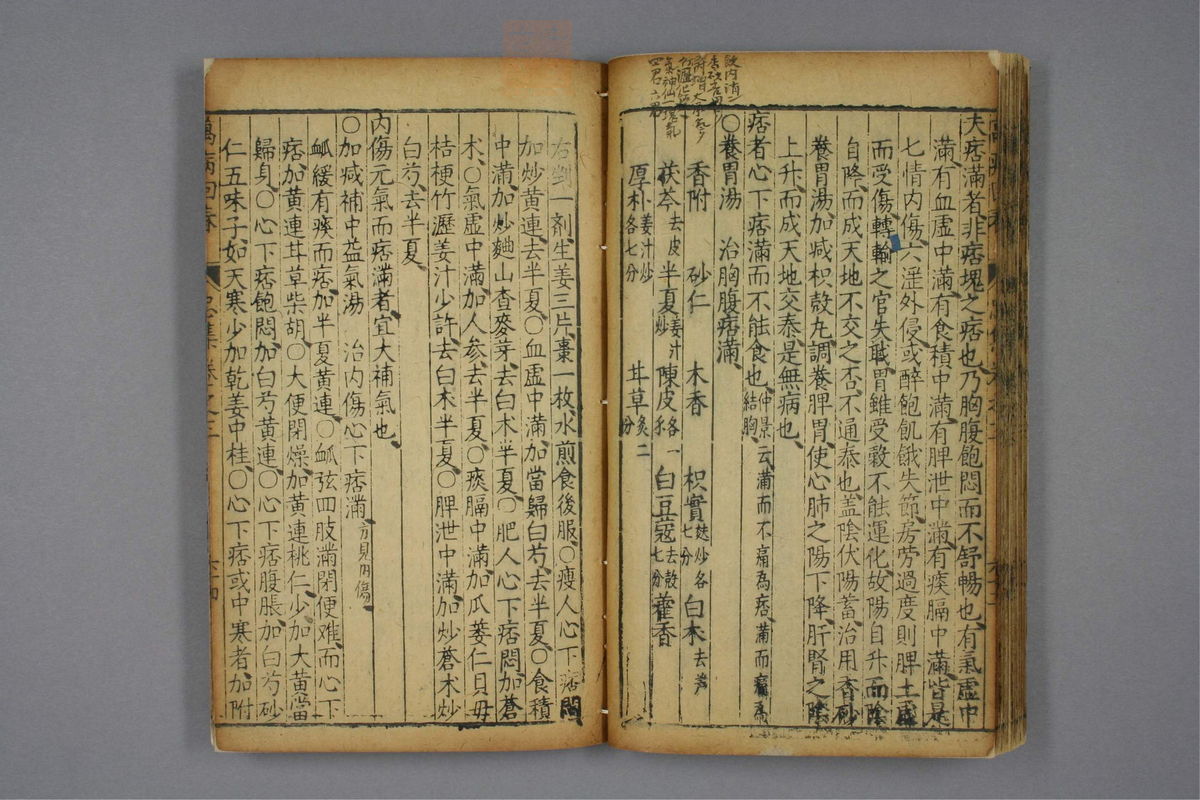 夫痞滿者非痞塊之痞也乃胸腹飽悶而不舒暢也有氣虛中
滿有血虛中滿有食積中滿有脾泄中滿有痰膈中滿皆是
七情內傷六淫外侵或醉飽飢餓失節房勞過度則脾土虛
而受傷轉輸之官失職胃雖受穀不能運化故陽自升而陰
自降而成天地不交之否不通泰也蓋陰伏陽蓄治用香砂
養胃湯加減枳殼丸調養脾胃使心肺之陽下降肝腎之陰
上升而成天地交泰是無病也
痞者心下痞滿而不能食也仲景云滿而不痛為痞滿而痛為結胸
○養胃湯 治胸腹痞滿
香附 砂仁 木香 枳實麩炒各七分 白朮去芦
茯苓去皮 半夏姜汁炒 陳皮各一 白豆蔻去殼七分 藿香
厚朴姜汁炒各七分 甘草炙二分
右剉一劑生姜三片棗一枚水煎食後服○瘦人心下痞悶
加炒黃連去半夏○血虛中滿加當歸白芍去半夏○食積
中滿加炒麯山查麥芽去白朮半夏○肥人心下痞悶加蒼
朮○氣虛中滿加人參去半夏○痰膈中滿加瓜蔞仁貝母
桔梗竹瀝姜汁少許去白朮半夏○脾泄中滿加炒蒼朮炒
白芍去半夏
內傷元氣而痞滿者宜大補氣也
○加减補中益氣湯 治內傷心下痞滿方見內傷
䘐緩有痰而痞加半夏黃連○䘐弦四肢滿閉便难而心下
痞加黃連甘草柴胡○大便閉燥加黃連桃仁少加大黃當
歸身○心下痞飽悶加白芍黃連○心下痞腹脹加白芍砂
仁五味子如天寒少加乾姜中桂○心下痞或中寒者加附